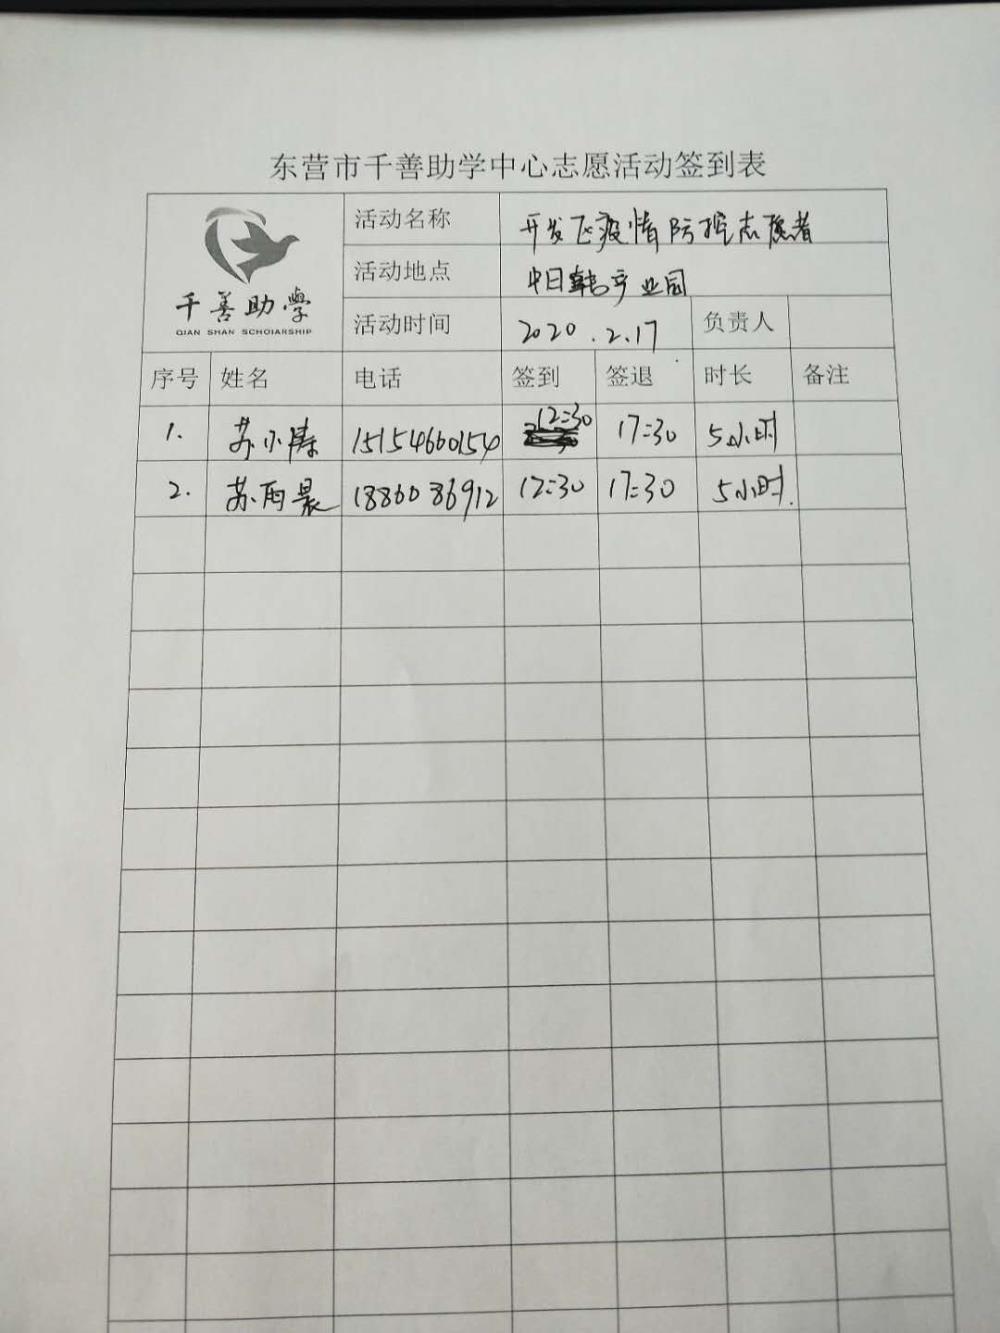 东营市千善助学中心志愿活动签到表
千善助學
QIAN SHAN SCHOIARSHIP
活动名称 开发区疫情防控志愿者
活动地点 中日韩产业园
活动时间 2020.2.17 负责人
序号 姓名 电话 签到 签退 时长 备注
1. 苏小涛 15154660154 12:30 17:30 5小时
2. 苏雨晨 18860 86912 12:30 17:30 5小时.